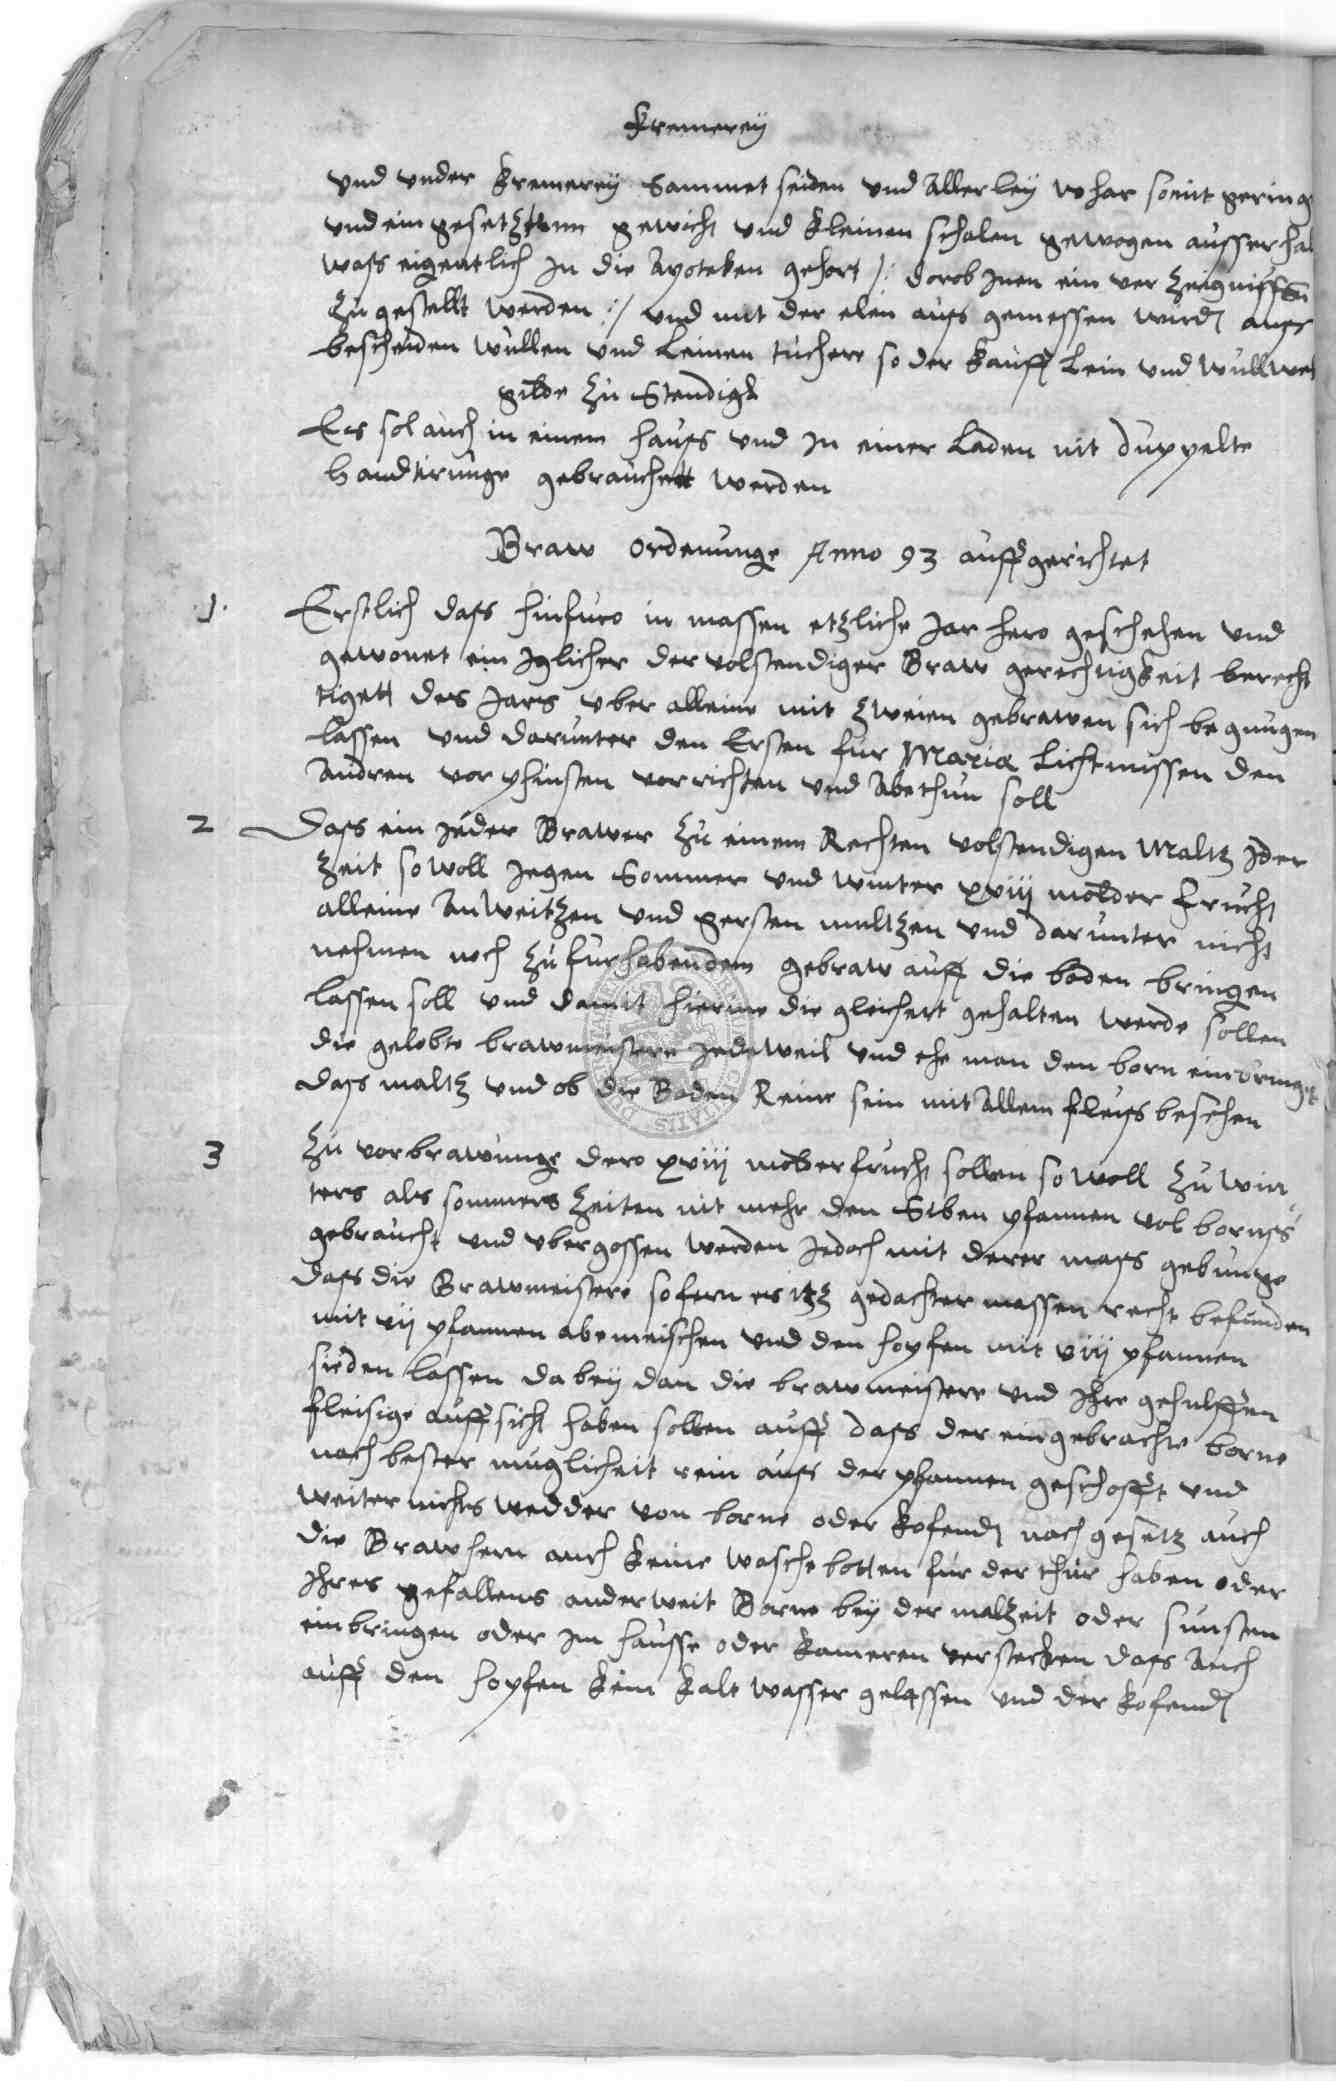 Kremereÿ
vnd vnder kremereÿ Sammet seiden vnd allerleÿ whar so mit gering
vnd ein gesetzttenn gewicht vnd kleinen schalen gewogen ausserha
was eigentlich in die Apoteken gehort /: dorob Inen ein ver Zeignuss
Zu gestellt werden :/ vnd mit der elen aus gemessen wird aus
bescheiden wullen vnd Leinen tucher so der kauff Lein vnd wullwe
gilde zu Stendig
Es sol auch in einem haus vnd In einer Laden nit duppelte
handtirunge gebrauchett werden
Braw ordenunge Anno 93 auffgerichtet
1. Erstlich das hinfuro in massen etzliche Jar hero geschehen vnd
gewonet ein Iglicher der volstendiger Braw gerechtigkeit berech
tigett des Jars vber alleine mit zweien gebrawen sich begnugen
lassen vnd darunter den Ersten fur Maria Lichtmissen den
Andren vor phinsten vorrichten vnd Abethun soll
2 Dass ein jeder Brawer zu einem Rechten volstendigen Maltz Ider
Zeit so woll Jegen Sommer vnd winter xviij molder frucht
alleine An weitzen vnd gersten multzen vnd darunter nicht
nehmen noch zu fur habendem gebraw auff die boden bringen
lassen soll vnd damit hierine die gleicheit gehalten werde sollen
die gelobte brawmeistere Jedeweil vnd ehe man den born einbringt
das maltz vnd ob die Boden Reine sein mit Allem fleis besehen
3 Zu vorbrawunge dero xviij molder frucht sollen so woll zu win
ters als sommers zeiten nit mehr den Siben pfannen vol borns
gebraucht vnd vbergossen werden Jedoch mit derer mass gebunge
das die Brawmeistere so fern es itz gedachter massen recht befunden
mit vij pfannen abemeischen vnd den hopfen mit viij pfannen
sieden lassen da beÿ dan die brawmeistere vnd Ihre gehulffen
fleisige auffsicht haben sollen auff das der eingebrachte borne
nach bester muglicheit rein aus der pfannen geschofft vnd
weiter nichts wedder von borne oder kofend nach gesetz auch
die Brawhern auch keine wasche botten fur der thur haben oder
Ihres gefallens anderweit Borne beÿ der malzeit oder sunsten
einbringen oder im hausse oder kameren verstecken das Auch
auff den hopfen kein kalt wasser gelassen vnd der kofend